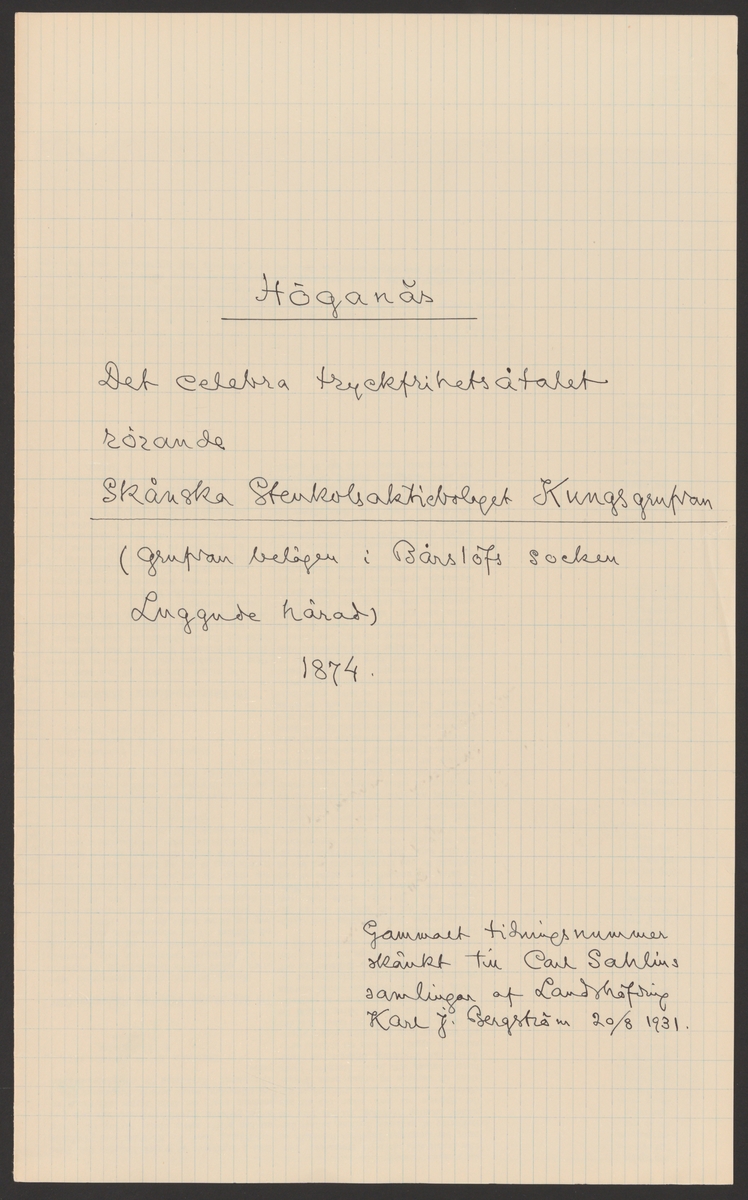 Höganäs
Det celebra tryckfrihetsåtalet
rörande
Skånska Stenkolsaktiebolaget Kungsgrufvan
(Grufvan belägen i Bårslöfs socken
Luggude härad)
1874.
Gammalt tidningsnummer
skänkt till Carl Sahlins
samlingar af Landshöfding
Karl J. Bergström 20/8 1931.